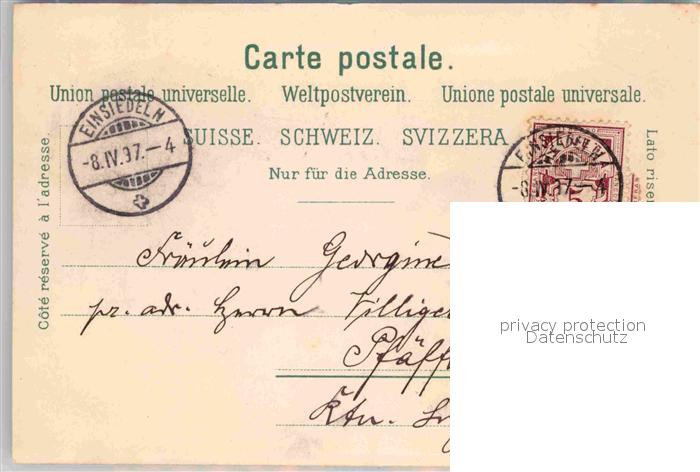 Carte postale.
Union postale universelle. Weltpostverein. Unione postale universale.
EINSIEDELN
-8.IV.97.-4
SUISSE. SCHWEIZ. SVIZZERA
EINSIEDELN
-8.IV.97.-4
5
Nur für die Adresse.
Côté réservé à l'adresse.
Lato riser
Fräulein Georgine
pr. adr. Herrn Villiger
Pfäff
Ktn.
privacy protection
Datenschutz